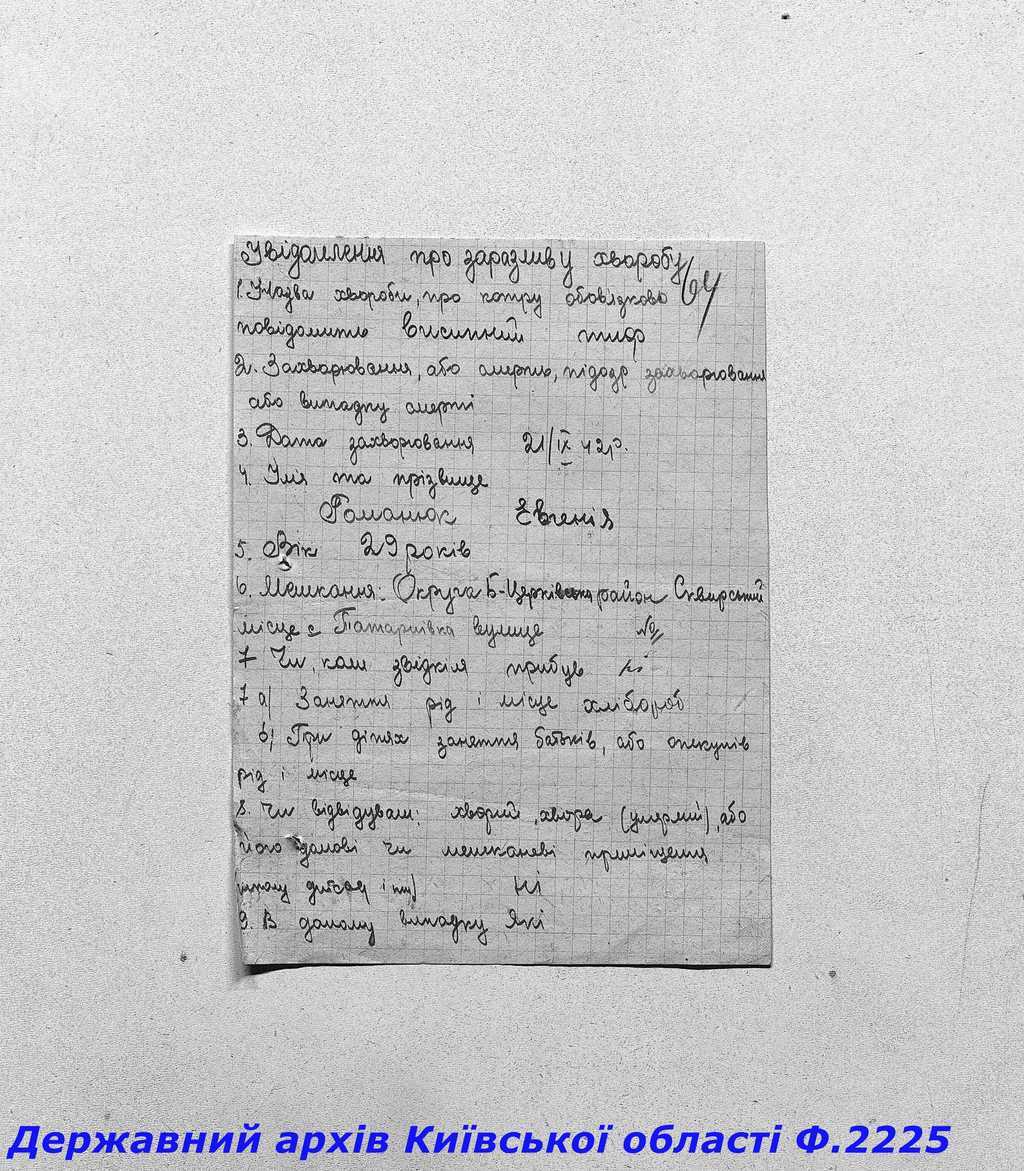 Увідомлення про заразливу хворобу 64
1. Назва хвороби, про котру обовязково
повідомить висипний тиф
2. Захворювання, або смерть, підозр захворювання
або випадку смерті
3. Дата захворювання 21/IX 42р.
4. Імя та прізвище
Романюк Евгенія
5. Вік 29 років
6. Мешкання: Округа Б-Церківська район Сквирський
місце с Татарнівка вулице №
7 Чи, коли звідкіля прибув ні
7 а) Заняття рід і місце хлібороб
б) При дітях заняття батьків, або опекунів
рід і місце
8. Чи відвідували: хворий, хвора (умерлий), або
його домові чи мешканеві приміщення
(школу дитсад і т.п) Ні
9. В даному випадку які
Державний архів Київської області Ф.2225